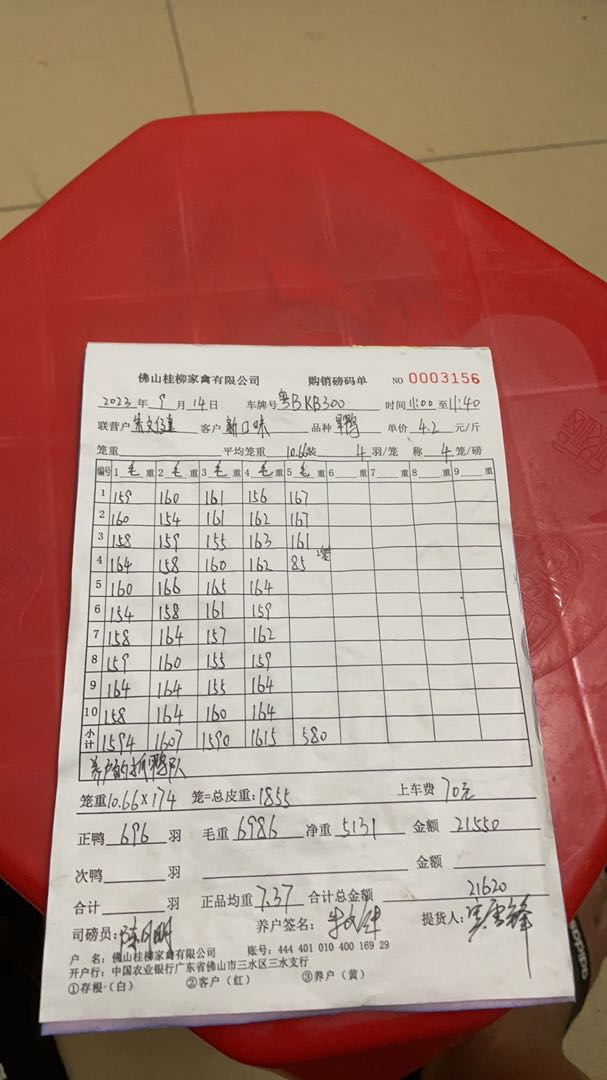 佛山桂柳家禽有限公司 购销磅码单 NO 0003156
2023 年 9 月 14 日 车牌号 粤BKB300 时间 11:00 至 11:40
联营户 客户 新口味 品种 单价 4.2 元/斤
笼重 平均笼重 10.66 装 4 羽/笼 称 4 笼/磅
编号 1 毛 重 2 毛 重 3 毛 重 4 毛 重 5 毛 重 6 重 7 重 8 重 9 重
1 159 160 161 156 167
2 160 154 161 162 167
3 158 159 155 163 161
4 164 158 160 162 85
5 160 166 165 164
6 154 158 161 159
7 158 164 157 162
8 159 160 155 159
9 164 164 155 164
10 158 164 160 164
小计 1594 1607 1590 1615 580
养户的抓鸭队
笼重 10.66×174 笼=总皮重: 1855 上车费 70元
正鸭 696 羽 毛重 6986 净重 5131 金额 21550
次鸭 羽 金额
合计 羽 正品均重 7.37 合计总金额 21620
司磅员: 养户签名: 提货人:
户 名: 佛山桂柳家禽有限公司 账号: 444 401 010 400 169 29
开户行: 中国农业银行广东省佛山市三水区三水支行
①存根(白) ②客户(红) ③养户(黄)